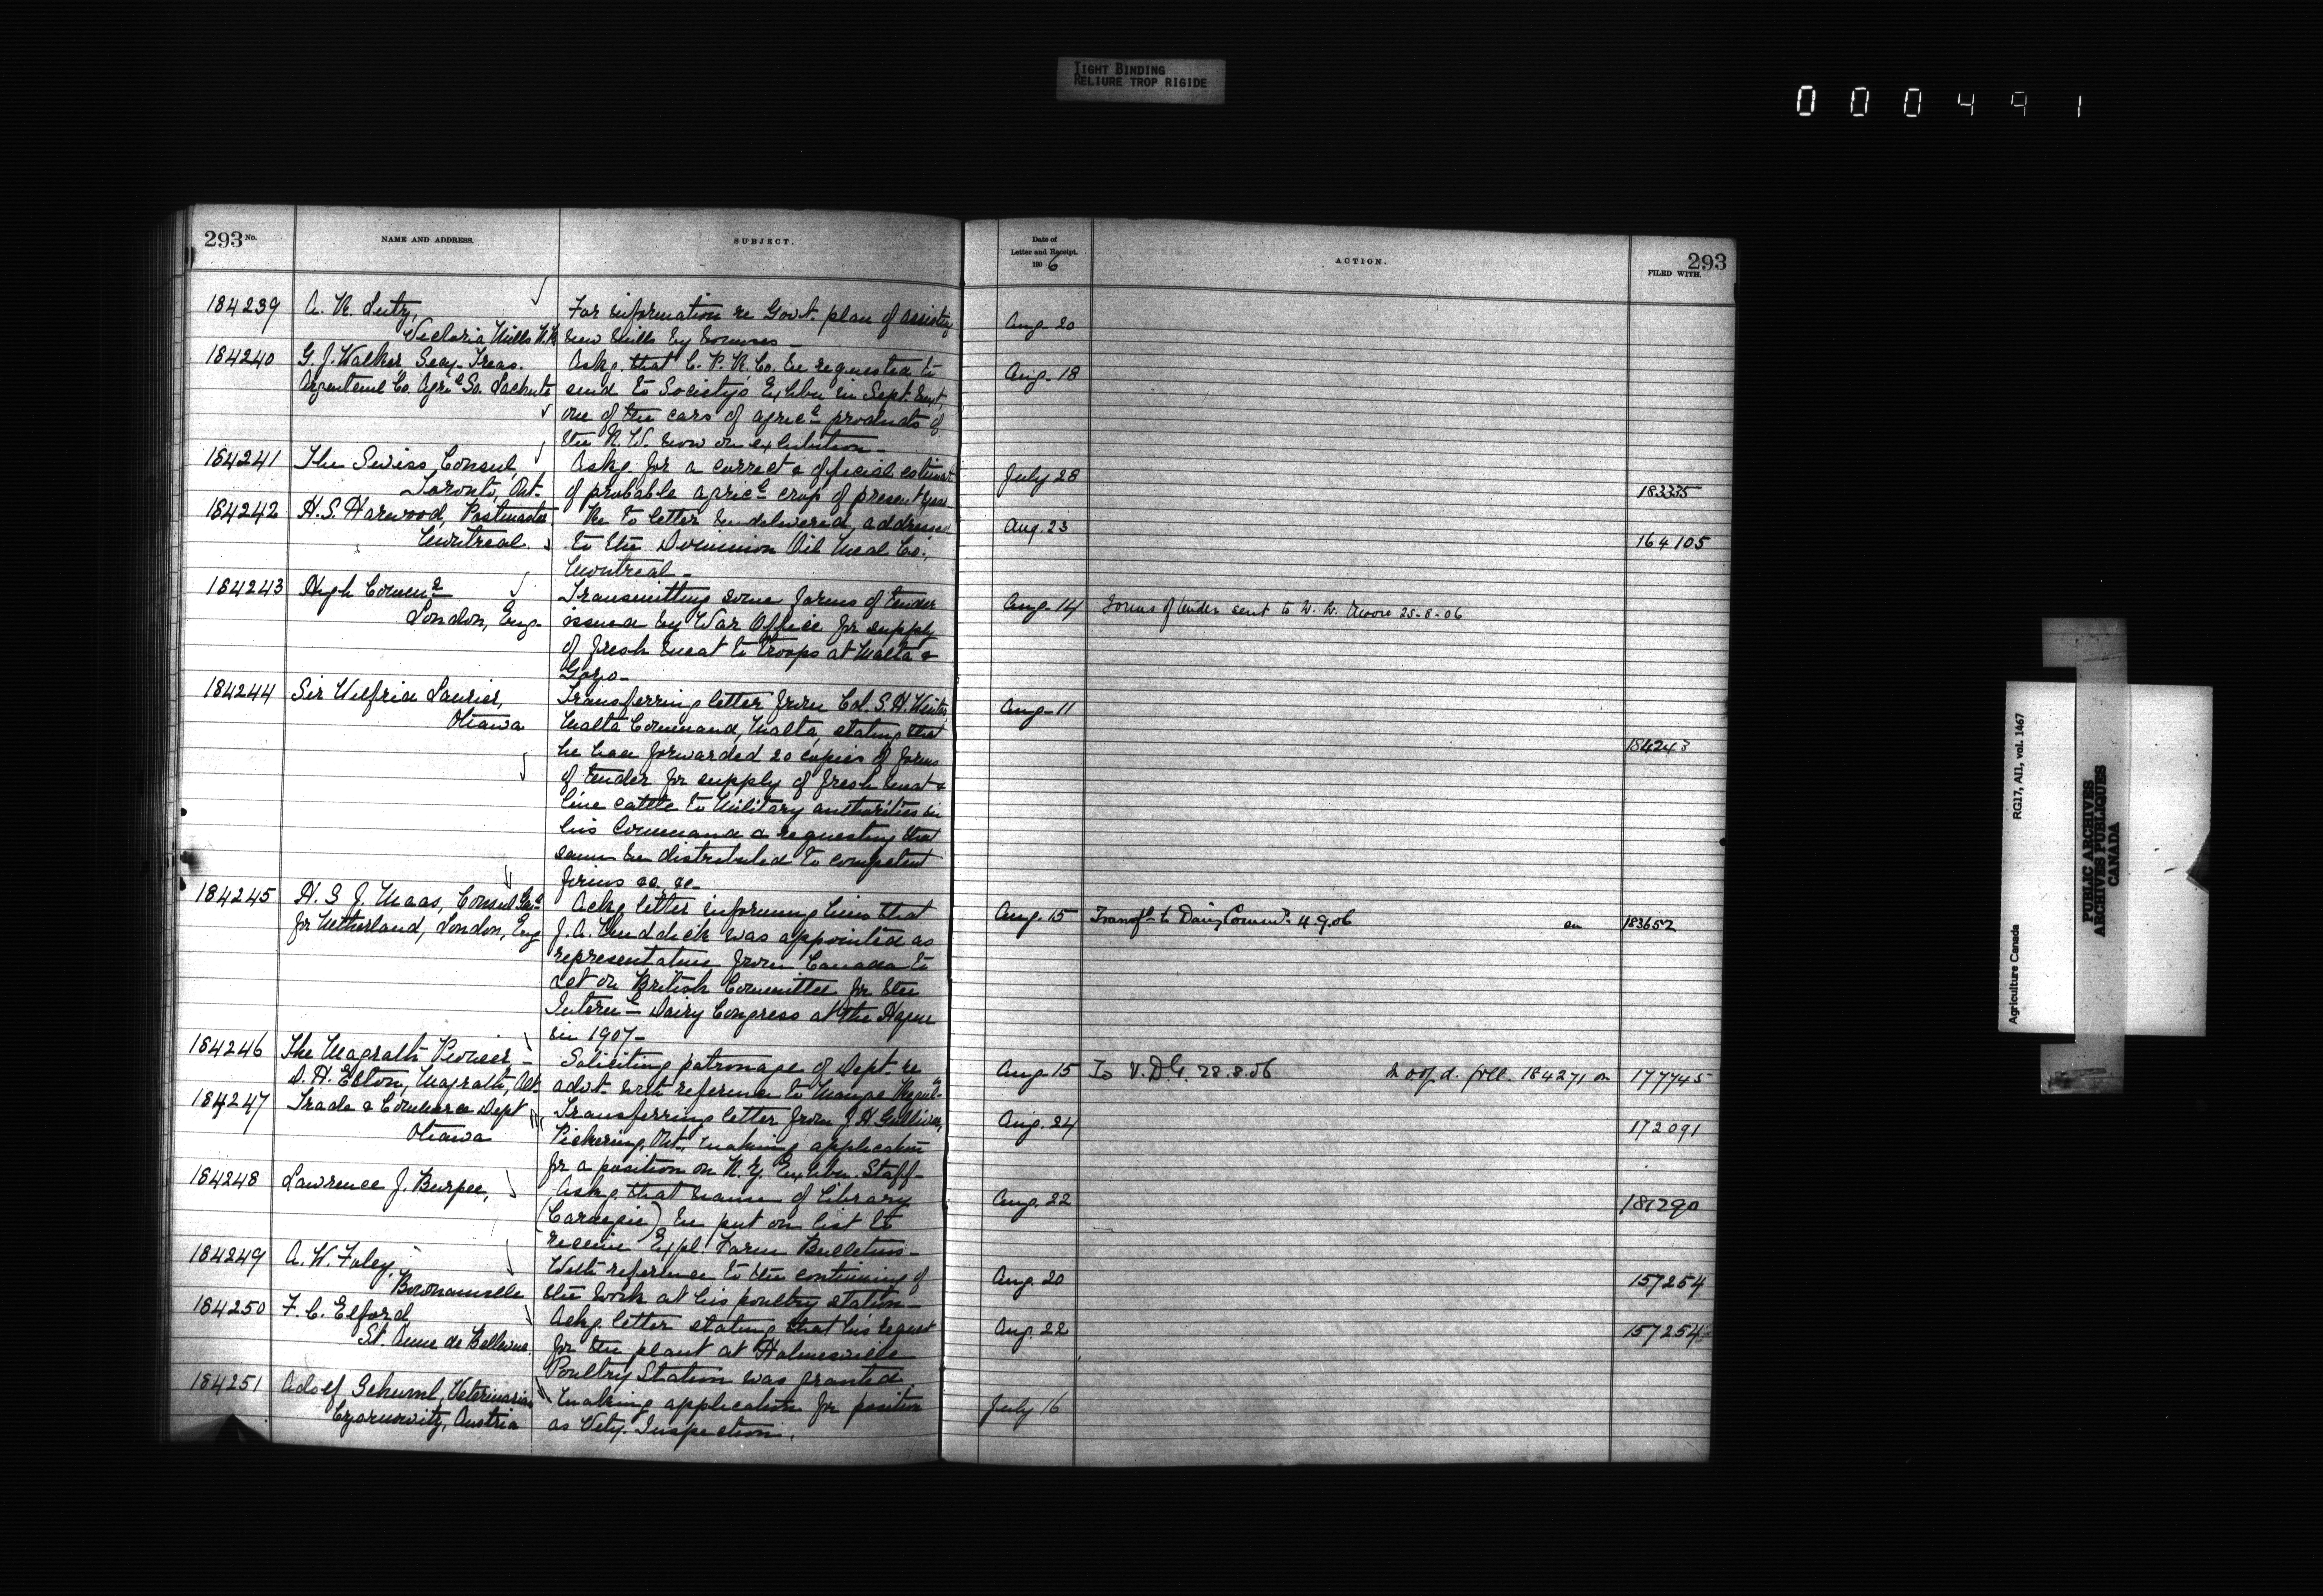 TIGHT BINDING
RELIURE TROP RIGIDE
000491
293 No.
NAME AND ADDRESS.
SUBJECT.
184239
A. R. Lutz,
Victoria Mills N.B.
For information re Govt. plan of assisting
new mills by bonuses -
184240
G. J. Walker, Secy-Treas.
Argenteuil Co. Agrl So. Lachute
Askg. that C. P. R. Co. be requested to
send to Society's Exhbn in Sept. next,
one of the cars of agricl products of
the N. W. now on exhibition -
184241
The Swiss Consul,
Toronto, Ont.
Askg. for a correct & official estimate
of probable agricl crop of present year
184242
H. S. Harwood, Postmaster
Montreal.
Re to letter undelivered, addressed
to the Dominion Oil Meal Co.,
Montreal -
184243
High Commr
London, Eng.
Transmitting some forms of tender
issued by War Office for supply
of fresh meat to troops at Malta &
Gozo -
184244
Sir Wilfrid Laurier,
Ottawa
Transferring letter from Col. S. H. Winter,
Malta Command, Malta, stating that
he had forwarded 20 copies of forms
of tender for supply of fresh meat &
live cattle to Military authorities in
his Command & requesting that
same be distributed to competent
firms &c. &c. -
184245
H. S. J. Maas, Consul Genl
for Netherland, London, Eng
Ackg letter informing him that
J. A. Ruddick was appointed as
representative from Canada to
act on British Committee for the
Internl Dairy Congress at the Hague
in 1907 -
184246
The Magrath Pioneer -
D. H. Elton, Magrath, Alt.
Soliciting patronage of Dept. re
advt. with reference to Mange Reguln
184247
Trade & Commerce Dept
Ottawa
Transferring letter from J. H. Gulliver,
Pickering, Ont., making application
for a position on N. Z. Exhbn. Staff -
184248
Lawrence J. Burpee,
Askg that name of Library
(Carnegie) be put on list to
receive Expl. Farm Bulletins -
184249
A. W. Foley,
Bowmanville
With reference to the continuing of
the work at his poultry station -
184250
F. C. Elford
St. Anne de Bellevue.
Ackg letter stating that his request
for the plant at Holmesville
Poultry Station was granted
184251
Adolf Schurml, Veterinarian
Czernowitz, Austria
Making application for position
as Vety. Inspection.
Date of
Letter and Receipt.
190 6
ACTION.
293
FILED WITH.
Aug. 20
Aug. 18
July 28
183335
Aug. 23
164105
Aug. 14 Forms of tender sent to W. W. Moore 25-8-06
Aug. 11
184243
Aug. 15 Transfd to Dairy Commr 4.9.06 on 183652
Aug. 15 To V.D.G. 28.8.06 foll. 184271 on 177745
Aug. 24
172091
Aug. 22
181290
Aug. 20
157254
Aug. 22
157254
July 16
Agriculture Canada
RG17, AII, vol. 1467
PUBLIC ARCHIVES
ARCHIVES PUBLIQUES
CANADA